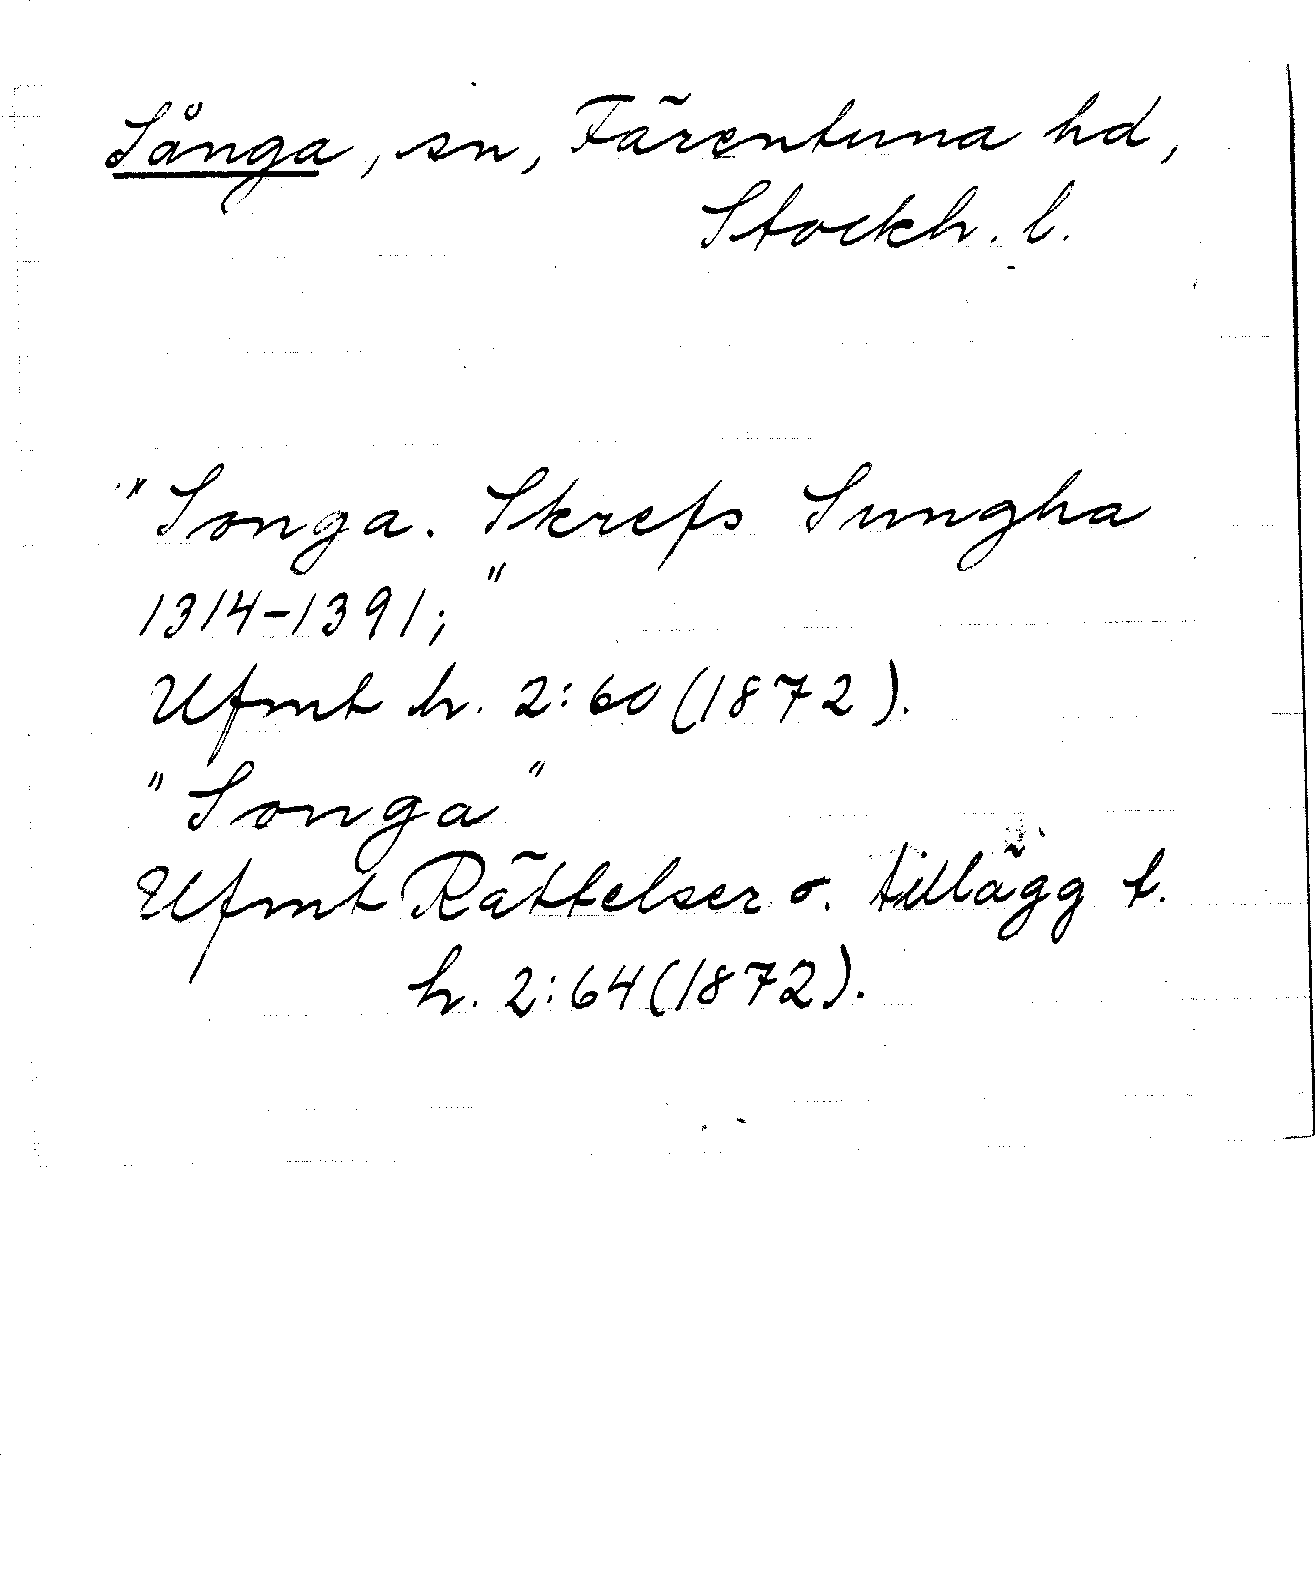 Sånga, sn, Färentuna hd,
Stockh. l.
"Songa. Skrefs Sungha
1314-1391;"
Ufmt h. 2:60 (1872).
"Songa"
Ufmt Rättelser o. tillägg t.
h. 2:64 (1872).